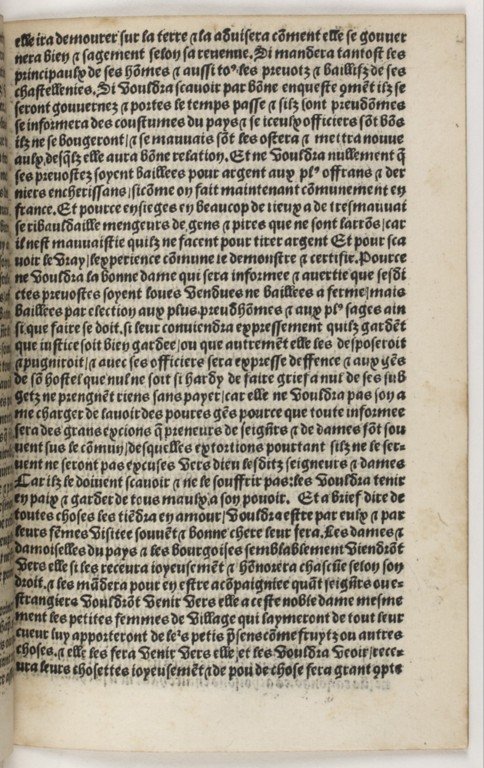 elle ira demourer sur la terre ⁊ la aduisera cõment elle se gouuer
nera bien ⁊ sagement selon sa reuenue. Si mandera tantost les
principaulx de ses hõmes ⁊ aussi to⁹ les preuotz ⁊ baillifz de ses
chastellenies. Si vouldra scauoir par bõne enqueste ꝯmẽt ilz se
seront gouuernez ⁊ portes le temps passe ⁊ silz sont preudõmes
se informera des coustumes du pays ⁊ se iceulx officiers sõt bõs
ilz ne se bougeront/⁊ se mauuais sõt les ostera ⁊ mettra nouue
aulx desq̃lz elle aura bõne relation. Et ne vouldra nullement q̃
ses preuostez soyent baillees pour argent aux pl⁹ offrans ⁊ der
niers encherissans/sicõme on fait maintenant cõmunement en
france. Et pource en sieges en beaucop de lieux a de tresmauuai
se ribauldaille mengeurs de gens ⁊ pires que ne sont larrõs/car
il nest mauuaistie quilz ne facent pour tirer argent Et pour sca
uoir le vray/lexperience cõmune le demonstre ⁊ certifie. Pource
ne vouldra la bonne dame qui sera informee ⁊ auertie que sesdi
ctes preuostes soyent loues vendues ne baillees a ferme/mais
baillees par election aux plus preudhõmes ⁊ aux pl⁹ sages ain
si que faire se doit. si leur conuiendra expressement quilz gardẽt
que iustice soit bien gardee/ou que autremẽt elle les desposeroit
⁊ pugniroit/⁊ auec ses officiers sera expresse deffence ⁊ aux gẽs
de sõ hostel que nul ne soit si hardy de faire grief a nul de ses sub
getz ne prengnẽt riens sans payer/car elle ne vouldra pas son a
me charger de lauoir des poures gẽs pource que toute informee
sera des grans excions q̃ preneurs de seignr̃s ⁊ de dames sõt sou
uent sus le cõmun/desquelles extortions pourtant silz ne le ser-
uent ne seront pas excuses vers dieu lesditz seigneurs ⁊ dames
Car ilz le doiuent scauoir ⁊ ne le souffrir pas: les vouldra tenir
en paix ⁊ garder de tous maulx/a son pouoir. Et a brief dire de
toutes choses les tiẽdra en amour/vouldra estre par eulx ⁊ par
leurs fẽmes visitee souuẽt ⁊ bonne chere leur fera. Les dames ⁊
damoiselles du pays ⁊ les bourgoises semblablement viendrõt
vers elle si les receura ioyeusemẽt ⁊ hõnorera chascũe selon son
droit. ⁊ les mãdera pour en estre acõpaigniee quãt seignr̃s ou e-
strangiers vouldrõt venir vers elle a ceste noble dame mesme
ment les petites femmes de village qui laymeront de tout leur
cueur luy apporteront de le⁹s petis p̃sens cõme fruytz ou autres
choses. ⁊ elle les fera venir vers elle/et les vouldra veoir/rece-
ura leurs chosettes ioyeusemẽt ⁊ de pou de chose fera grant ꝯpte